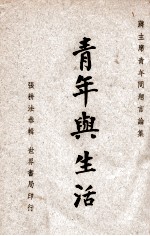 蔣主席青年問題言論集
青年與生活
張耕法恭輯 世界書局印行